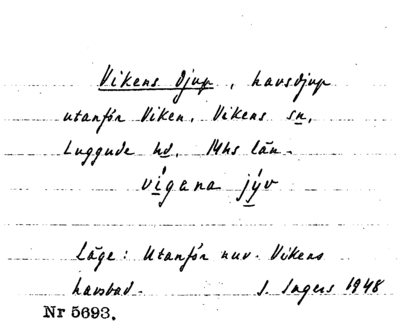 Vikens djup, havsdjup
utanför Viken, Vikens sn,
Luggude hd, Mhs län.
vígana jýv
Läge: Utanför nuv. Vikens
havsbad. I. Ingers 1948
Nr 5693.